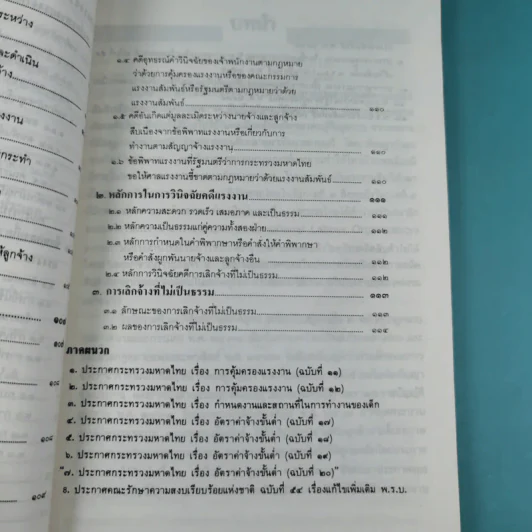 ระหว่าง
และดำเนิน
จ้าง
งาน
กระทำ
ให้ลูกจ้าง
๑๐๘
๑๐๘
๑๐๘
๑.๔ คดีอุทธรณ์คำวินิจฉัยของเจ้าพนักงานตามกฎหมาย
ว่าด้วยการคุ้มครองแรงงานหรือของคณะกรรมการ
แรงงานสัมพันธ์หรือรัฐมนตรีตามกฎหมายว่าด้วย
แรงงานสัมพันธ์ ๑๑๐
๑.๕ คดีอันเกิดแต่มูลละเมิดระหว่างนายจ้างและลูกจ้าง
สืบเนื่องจากข้อพิพาทแรงงานหรือเกี่ยวกับการ
ทำงานตามสัญญาจ้างแรงงาน ๑๑๐
๑.๖ ข้อพิพาทแรงงานที่รัฐมนตรีว่าการกระทรวงมหาดไทย
ขอให้ศาลแรงงานชี้ขาดตามกฎหมายว่าด้วยแรงงานสัมพันธ์ ๑๑๐
๒. หลักการในการวินิจฉัยคดีแรงงาน ๑๑๑
๒.๑ หลักความสะดวก รวดเร็ว เสมอภาค และเป็นธรรม ๑๑๑
๒.๒ หลักความเป็นธรรมแก่คู่ความทั้งสองฝ่าย ๑๑๒
๒.๓ หลักการกำหนดในคำพิพากษาหรือคำสั่งให้คำพิพากษา
หรือคำสั่งผูกพันนายจ้างและลูกจ้างอื่น ๑๑๒
๒.๔ หลักการวินิจฉัยคดีการเลิกจ้างที่ไม่เป็นธรรม ๑๑๒
๓. การเลิกจ้างที่ไม่เป็นธรรม ๑๑๓
๓.๑ ลักษณะของการเลิกจ้างที่ไม่เป็นธรรม ๑๑๓
๓.๒ ผลของการเลิกจ้างที่ไม่เป็นธรรม ๑๑๔
ภาคผนวก
๑. ประกาศกระทรวงมหาดไทย เรื่อง การคุ้มครองแรงงาน (ฉบับที่ ๑๑)
๒. ประกาศกระทรวงมหาดไทย เรื่อง การคุ้มครองแรงงาน (ฉบับที่ ๑๒)
๓. ประกาศกระทรวงมหาดไทย เรื่อง กำหนดงานและสถานที่ในการทำงานของเด็ก
๔. ประกาศกระทรวงมหาดไทย เรื่อง อัตราค่าจ้างขั้นต่ำ (ฉบับที่ ๑๗)
๕. ประกาศกระทรวงมหาดไทย เรื่อง อัตราค่าจ้างขั้นต่ำ (ฉบับที่ ๑๘)
๖. ประกาศกระทรวงมหาดไทย เรื่อง อัตราค่าจ้างขั้นต่ำ (ฉบับที่ ๑๙)
"๗. ประกาศกระทรวงมหาดไทย เรื่อง อัตราค่าจ้างขั้นต่ำ (ฉบับที่ ๒๐)"
๘. ประกาศคณะรักษาความสงบเรียบร้อยแห่งชาติ ฉบับที่ ๕๔ เรื่องแก้ไขเพิ่มเติม พ.ร.บ.